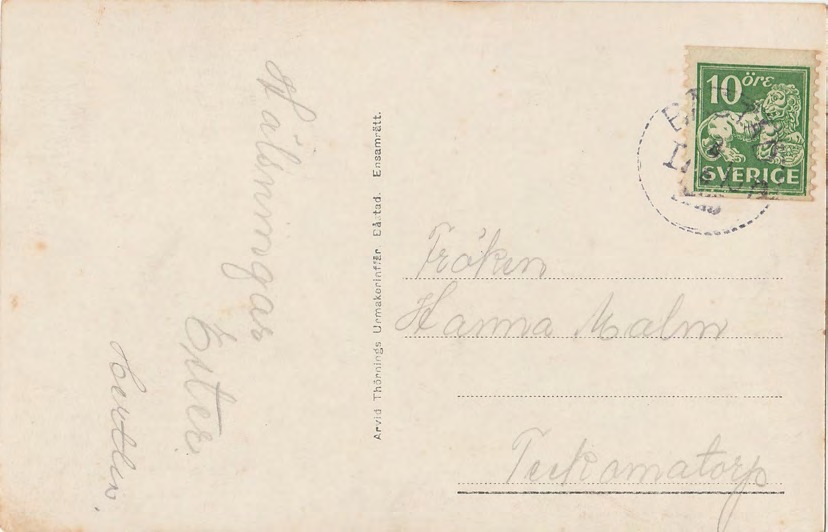 Hälsningar
Ester
Arvid Thörnings Urmakeriaffär Båstad. Ensamrätt.
10 öre
SVERIGE
Fröken
Hanna Malm
Teckomatorp